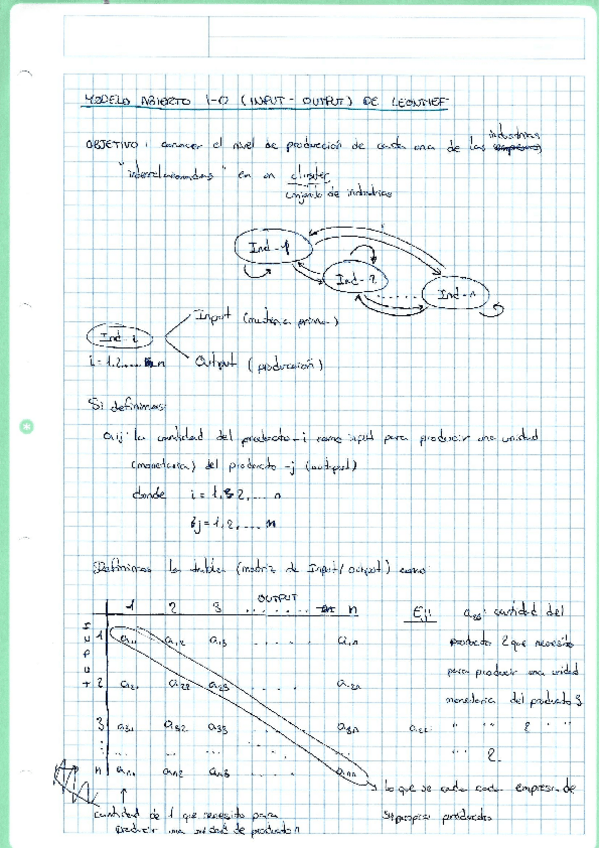 MODELO ABIERTO I-O (INPUT-OUTPUT) DE LEONTIEF
OBJETIVO: conocer el nivel de producción de cada una de las industrias
"interrelacionadas" en un cluster
conjunto de industrias
Ind-1
Ind-2
Ind-n
Ind-i
Input (materia prima)
i=1,2,... n
Output (producción)
Si definimos:
aij: la cantidad del producto-i como input para producir una unidad
(monetaria) del producto-j (output)
donde i=1,2,... n
j=1,2,... n
Definimos la tabla (matriz de Input/output) como
OUTPUT
1 2 3 ...... n
INPUT
1 a11 a12 a13 .... a1n
2 a21 a22 a23 .... a2n
3 a31 a32 a33 .... a3n
n an1 an2 an3 .... ann
Ej: a23: cantidad del
producto 2 que necesito
para producir una unidad
monetaria del producto 3
a22 " " 2 " "
" 2.
lo que se cada cada empresa de
su propio producto
cantidad de 1 que necesito para
producir una unidad de producto n